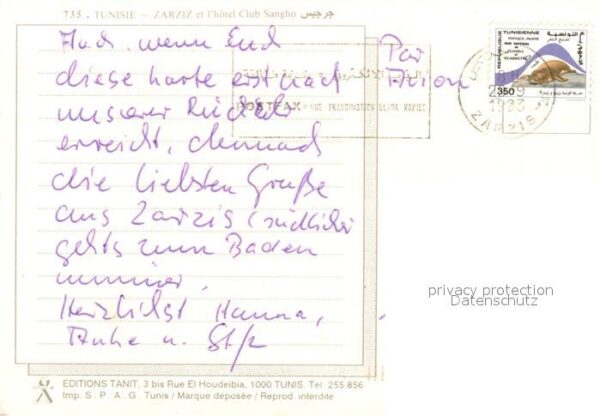 735 . TUNISIE — ZARZIZ et l'hôtel Club Sangho جرجيس
Auch wenn Euch
diese Karte erst nach
unserer Rückkehr
erreicht, dennoch
die liebsten Grüße
aus Zarzis (südlicher
gehts zum Baden
nimmer.
Herzlichst Hanna,
u.
Par
Avion
POSTFAX UNE TRANSMISSION ULTRA RAPIDE
REPUBLIQUE TUNISIENNE
350
1993
ZARZIS
privacy protection
Datenschutz
EDITIONS TANIT, 3 bis Rue El Houdeibia, 1000 TUNIS. Tel 255.856
Imp. S. P. A. G. Tunis / Marque déposée / Reprod. interdite